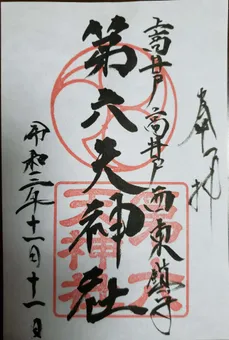 奉拝
上高井戸 高井戸西東鎮守
第六天神社
令和三年十一月十一日